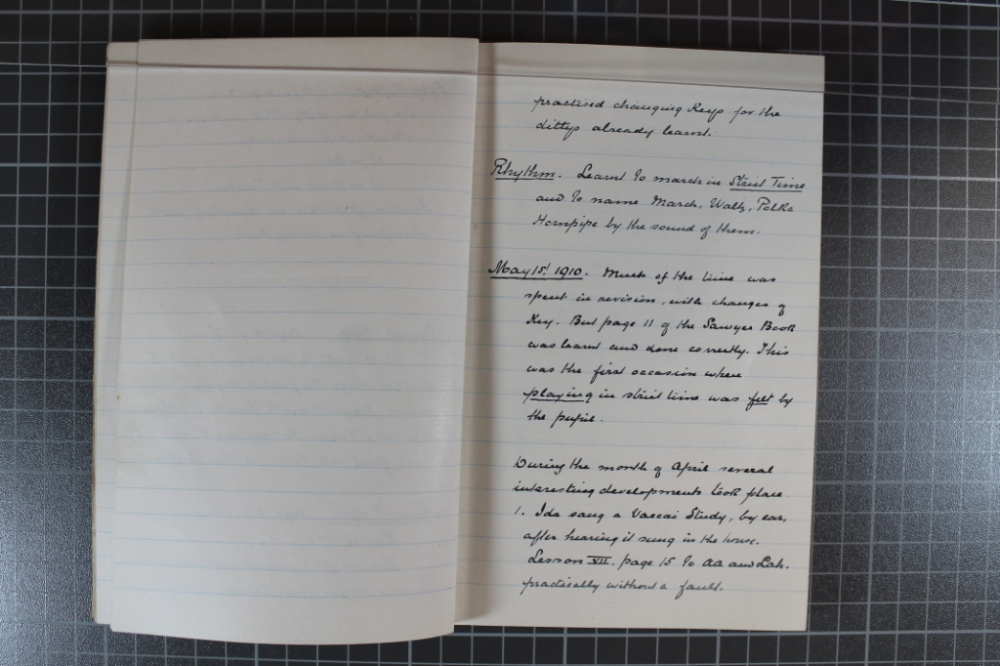 practised changing Keys for the
dittys already learnt.
Rhythm. Learnt to march in Strict Time
and to name March, Waltz, Polka
Hornpipe by the sound of them.
May 15t 1910. Much of the time was
spent in revision, with changes of
Key. But page 11 of the Sawyer Book
was learnt and done correctly. This
was the first occasion where
playing in strict time was felt by
the pupil.
During the month of April several
interesting developments took place
1. Ida sang a Vaccai Study, by ear,
after hearing it sung in the house.
Lesson VII. page 15 to aa and Lah.
practically without a fault.